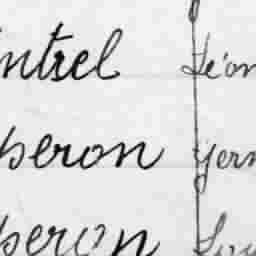 ntrel Léon
peron Yern
peron Lou